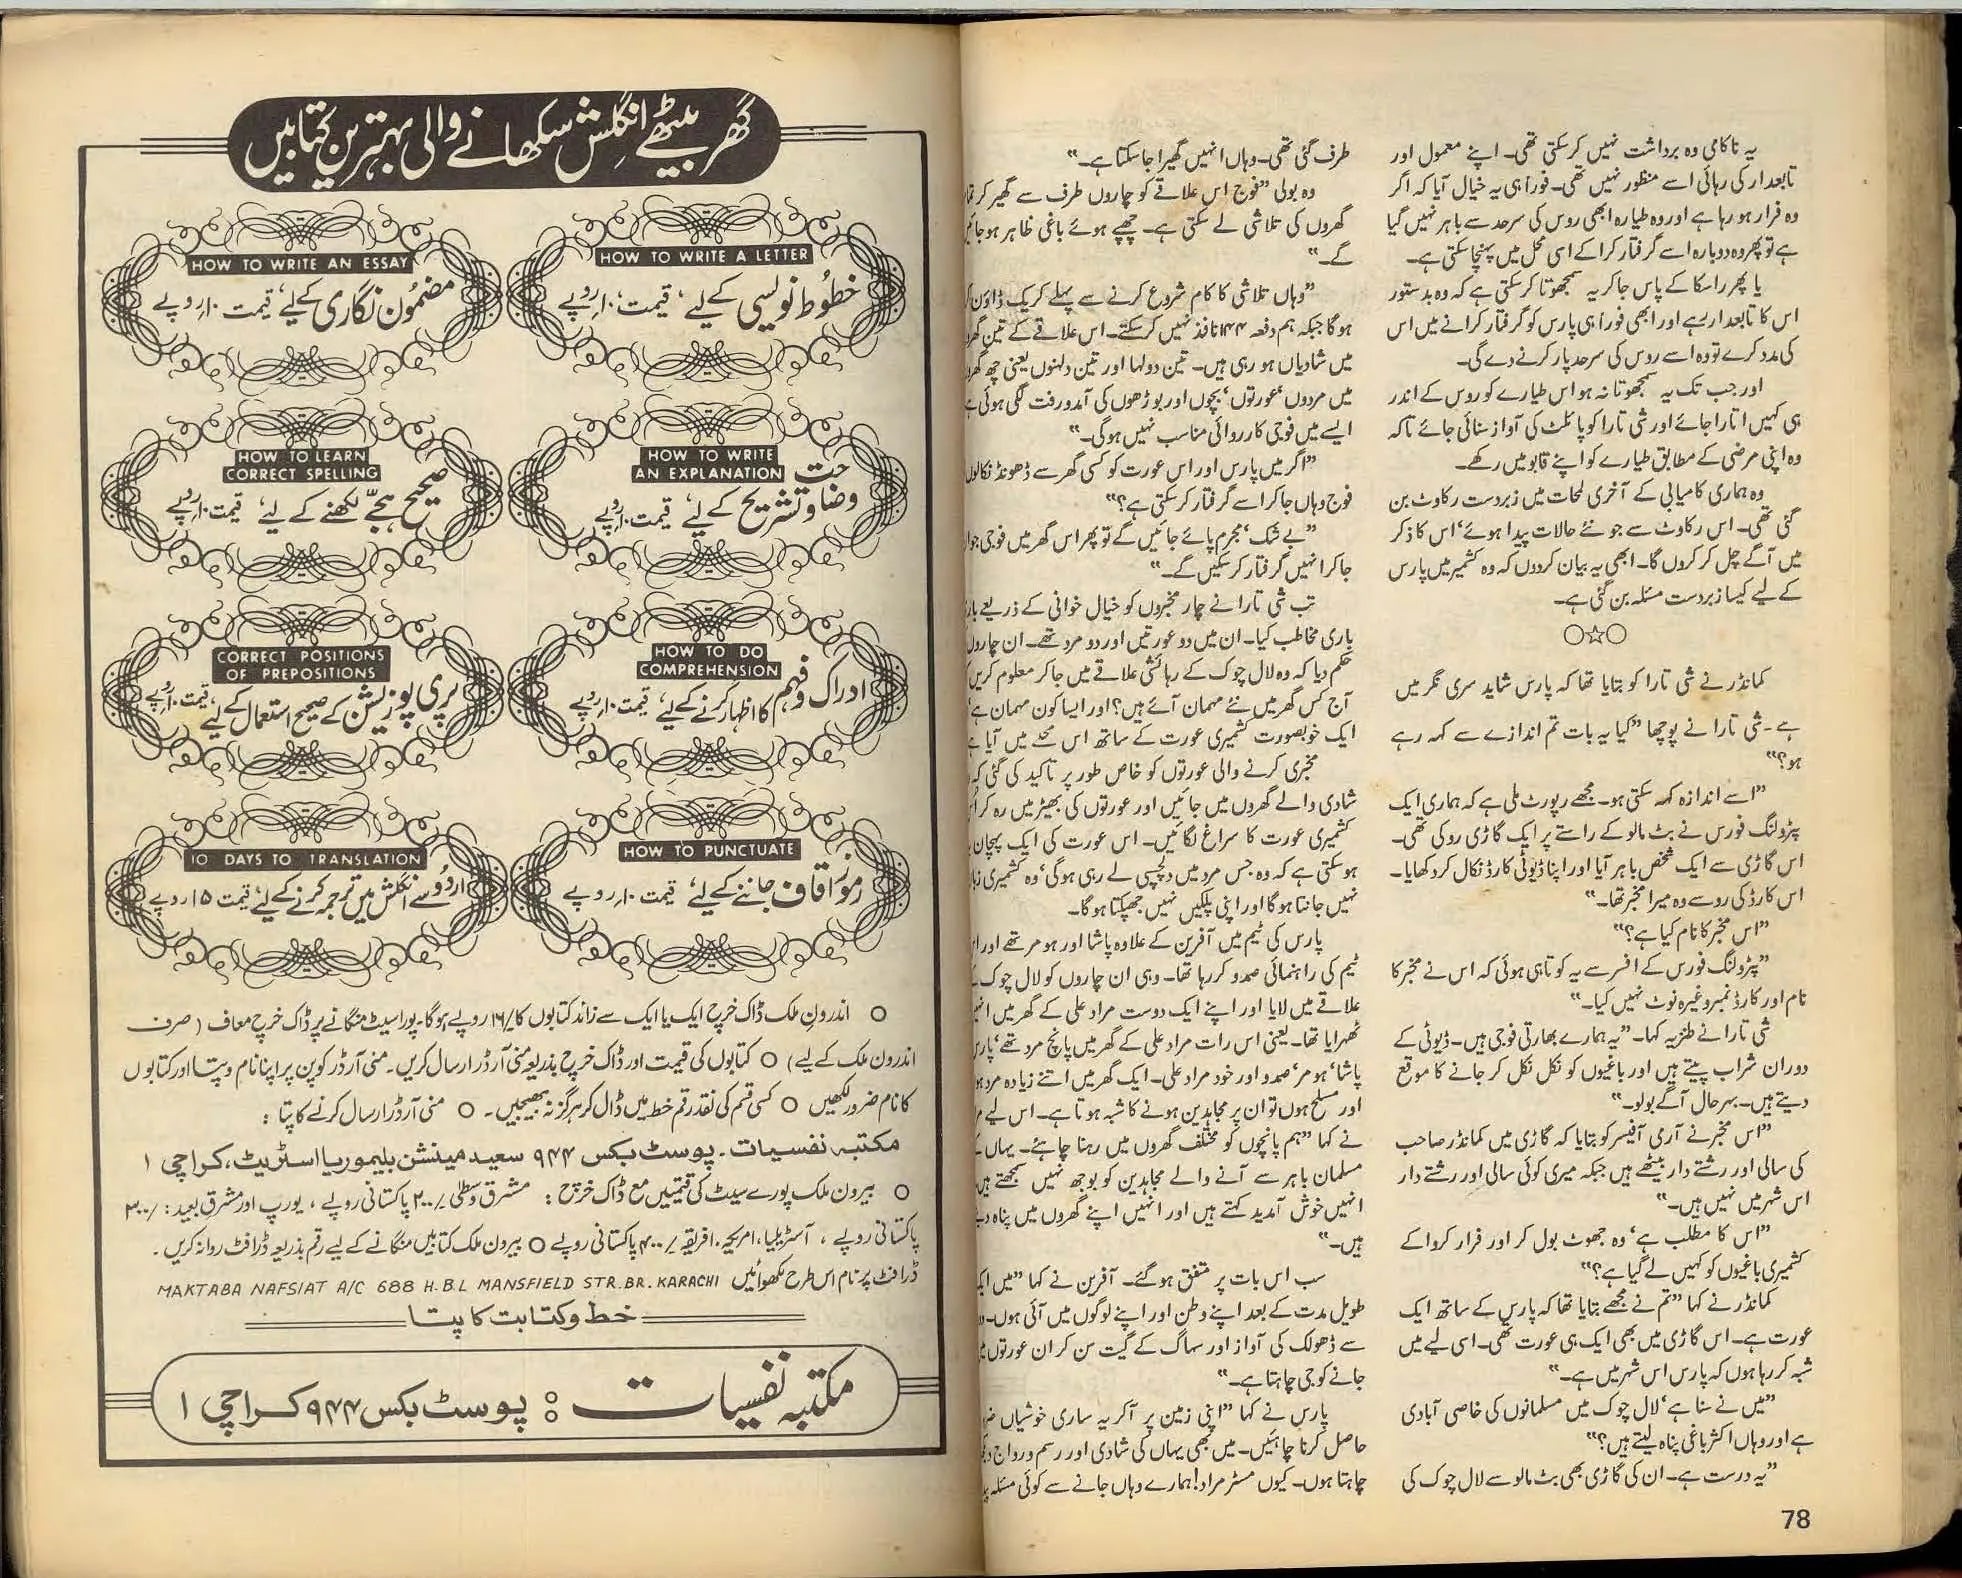 یہ ناکامی وہ برداشت نہیں کرسکتی تھی۔ اپنے معمول اور
تابعدار کی رہائی اسے منظور نہیں تھی۔ فوراً ہی یہ خیال آیا کہ اگر
وہ فرار ہو رہا ہے اور وہ طیارہ ابھی روس کی سرحد سے باہر نہیں گیا
ہے تو پھر وہ دوبارہ اسے گرفتار کرا کے اسی محل میں پہنچا سکتی ہے۔
یا پھر راسکا کے پاس جا کر یہ سمجھوتا کرسکتی ہے کہ وہ بدستور
اس کا تابعدار رہے اور ابھی فوراً ہی پارس کو گرفتار کرانے میں اس
کی مدد کرے تو وہ اسے روس کی سرحد پار کرنے دے گی۔
اور جب تک یہ سمجھوتا نہ ہو اس طیارے کو روس کے اندر
ہی کہیں اتارا جائے اور شی تارا کو پائلٹ کی آواز سنائی جائے تاکہ
وہ اپنی مرضی کے مطابق طیارے کو اپنے قابو میں رکھے۔
وہ ہماری کامیابی کے آخری لمحات میں زبردست رکاوٹ بن
گئی تھی۔ اس رکاوٹ سے جو نئے حالات پیدا ہوئے‘ اس کا ذکر
میں آگے چل کر کروں گا۔ ابھی یہ بیان کردوں کہ وہ کشمیر میں پارس
کے لیے کیسا زبردست مسئلہ بن گئی ہے۔
○☆○
کمانڈر نے شی تارا کو بتایا تھا کہ پارس شاید سری نگر میں
ہے۔ شی تارا نے پوچھا ”کیا یہ بات تم اندازے سے کہہ رہے
ہو؟“
”اسے اندازہ کہہ سکتی ہو۔ مجھے رپورٹ ملی ہے کہ ہماری ایک
پٹرولنگ فورس نے بٹ مالو کے راستے پر ایک گاڑی روکی تھی۔
اس گاڑی سے ایک شخص باہر آیا اور اپنا ڈیوٹی کارڈ نکال کر دکھایا۔
اس کارڈ کی رو سے وہ میرا مخبر تھا۔“
”اس مخبر کا نام کیا ہے؟“
”پٹرولنگ فورس کے افسر سے یہ کوتاہی ہوئی کہ اس نے مخبر کا
نام اور کارڈ نمبر وغیرہ نوٹ نہیں کیا۔“
شی تارا نے طنزیہ کہا۔ ”یہ ہمارے بھارتی فوجی ہیں۔ ڈیوٹی کے
دوران شراب پیتے ہیں اور باغیوں کو نکل نکل کر جانے کا موقع
دیتے ہیں۔ بہرحال آگے بولو۔“
”اس مخبر نے آرمی آفیسر کو بتایا کہ گاڑی میں کمانڈر صاحب
کی سالی اور رشتے دار بیٹھے ہیں جبکہ میری کوئی سالی اور رشتے دار
اس شہر میں نہیں ہیں۔“
”اس کا مطلب ہے‘ وہ جھوٹ بول کر اور فرار کروا کے
کشمیری باغیوں کو کہیں لے گیا ہے؟“
کمانڈر نے کہا ”تم نے مجھے بتایا تھا کہ پارس کے ساتھ ایک
عورت ہے۔ اس گاڑی میں بھی ایک ہی عورت تھی۔ اسی لیے میں
شبہ کر رہا ہوں کہ پارس اس شہر میں ہے۔“
”میں نے سنا ہے‘ لال چوک میں مسلمانوں کی خاصی آبادی
ہے اور وہاں اکثر باغی پناہ لیتے ہیں؟“
”یہ درست ہے۔ ان کی گاڑی بھی بٹ مالو سے لال چوک کی
طرف گئی تھی۔ وہاں انہیں گھیرا جاسکتا ہے۔“
وہ بولی ”فوج اس علاقے کو چاروں طرف سے گھیر کر
گھروں کی تلاشی لے سکتی ہے۔ چھپے ہوئے باغی ظاہر ہوجائیں
گے۔“
”وہاں تلاشی کا کام شروع کرنے سے پہلے کریک ڈاؤن
ہوگا جبکہ ہم دفعہ ۱۴۴ نافذ نہیں کرسکتے۔ اس علاقے کے تین
میں شادیاں ہو رہی ہیں۔ تین دولہا اور تین دلہنوں یعنی چھ
میں مردوں‘ عورتوں‘ بچوں اور بوڑھوں کی آمدورفت لگی ہوئی
ایسے میں فوجی کارروائی مناسب نہیں ہوگی۔“
”اگر میں پارس اور اس عورت کو کسی گھر سے ڈھونڈ نکالوں
فوج وہاں جا کر اسے گرفتار کرسکتی ہے؟“
”بے شک‘ مجرم پائے جائیں گے تو پھر اس گھر میں فوجی
جا کر انہیں گرفتار کرسکیں گے۔“
تب شی تارا نے چار مخبروں کو خیال خوانی کے ذریعے
باری مخاطب کیا۔ ان میں دو عورتیں اور دو مرد تھے۔ ان چاروں
حکم دیا کہ وہ لال چوک کے رہائشی علاقے میں جا کر معلوم کریں
آج کس گھر میں نئے مہمان آئے ہیں؟ اور ایسا کون مہمان ہے
ایک خوبصورت کشمیری عورت کے ساتھ اس محلے میں آیا
مخبری کرنے والی عورتوں کو خاص طور پر تاکید کی گئی کہ
شادی والے گھروں میں جائیں اور عورتوں کی بھیڑ میں رہ کر
کشمیری عورت کا سراغ لگائیں۔ اس عورت کی ایک پہچان
ہوسکتی ہے کہ وہ جس مرد میں دلچسپی لے رہی ہوگی‘ وہ کشمیری
نہیں جانتا ہوگا اور اپنی پلکیں نہیں جھپکتا ہوگا۔
پارس کی ٹیم میں آفرین کے علاوہ پاشا اور ہومر تھے اور
ٹیم کی راہنمائی صمدو کر رہا تھا۔ وہی ان چاروں کو لال چوک
علاقے میں لایا اور اپنے ایک دوست مراد علی کے گھر میں
ٹھہرایا تھا۔ یعنی اس رات مراد علی کے گھر میں پانچ مرد تھے‘ پارس
پاشا‘ ہومر‘ صمدو اور خود مراد علی۔ ایک گھر میں اتنے زیادہ مرد
اور مسلح ہوں تو ان پر مجاہدین ہونے کا شبہ ہوتا ہے۔ اس لیے
نے کہا ”ہم پانچوں کو مختلف گھروں میں رہنا چاہئے۔ یہاں
مسلمان باہر سے آنے والے مجاہدین کو بوجھ نہیں سمجھتے ہیں
انہیں خوش آمدید کہتے ہیں اور انہیں اپنے گھروں میں پناہ
ہیں۔“
سب اس بات پر متفق ہوگئے۔ آفرین نے کہا ”میں
طویل مدت کے بعد اپنے وطن اور اپنے لوگوں میں آئی ہوں۔
سے ڈھولک کی آواز اور سہاگ کے گیت سن کر ان عورتوں
جانے کو جی چاہتا ہے۔“
پارس نے کہا ”اپنی زمین پر آ کر یہ ساری خوشیاں
حاصل کرنا چاہئیں۔ میں بھی یہاں کی شادی اور رسم و رواج
چاہتا ہوں۔ کیوں مسٹر مراد! ہمارے وہاں جانے سے کوئی مسئلہ
78
گھر بیٹھے انگلش سکھانے والی بہترین کتابیں
HOW TO WRITE A LETTER
خطوط نویسی کے لیے‘ قیمت ۱۰ روپے
HOW TO WRITE AN ESSAY
مضمون نگاری کے لیے‘ قیمت ۱۰ روپے
HOW TO WRITE
AN EXPLANATION
وضاحت و تشریح کے لیے‘ قیمت ۱۰ روپے
HOW TO LEARN
CORRECT SPELLING
صحیح ہجے لکھنے کے لیے‘ قیمت ۱۰ روپے
HOW TO DO
COMPREHENSION
ادراک و فہم کا اظہار کرنے کے لیے‘ قیمت ۱۰ روپے
CORRECT POSITIONS
OF PREPOSITIONS
پری پوزیشن کے صحیح استعمال کے لیے‘ قیمت ۱۰ روپے
HOW TO PUNCTUATE
رموز اوقاف جاننے کے لیے‘ قیمت ۱۰ روپے
10 DAYS TO TRANSLATION
اردو سے انگلش میں ترجمہ کرنے کے لیے‘ قیمت ۱۵ روپے
○ اندرون ملک ڈاک خرچ ایک یا ایک سے زائد کتابوں کا ۱۶/ روپے ہوگا۔ پورا سیٹ منگانے پر ڈاک خرچ معاف (صرف
اندرون ملک کے لیے) ○ کتابوں کی قیمت اور ڈاک خرچ بذریعہ منی آرڈر ارسال کریں۔ منی آرڈر کوپن پر اپنا نام و پتا اور کتابوں
کا نام ضرور لکھیں ○ کسی قسم کی نقد رقم خط میں ڈال کر ہرگز نہ بھیجیں۔ ○ منی آرڈر ارسال کرنے کا پتا :
مکتبہ نفسیات۔ پوسٹ بکس ۹۴۴ سعید مینشن بلیموریا اسٹریٹ، کراچی ۱
○ بیرون ملک پورے سیٹ کی قیمتیں مع ڈاک خرچ : مشرق وسطیٰ ۲۰۰/ پاکستانی روپے، یورپ اور مشرق بعید: ۳۰۰/
پاکستانی روپے، آسٹریلیا، امریکہ، افریقہ ۴۰۰/ پاکستانی روپے ○ بیرون ملک کتابیں منگانے کے لیے رقم بذریعہ ڈرافٹ روانہ کریں۔
ڈرافٹ پر نام اس طرح لکھوائیں MAKTABA NAFSIAT A/C 688 H.B.L MANSFIELD STR.BR. KARACHI
خط و کتابت کا پتا
مکتبہ نفسیات : پوسٹ بکس ۹۴۴ کراچی ۱